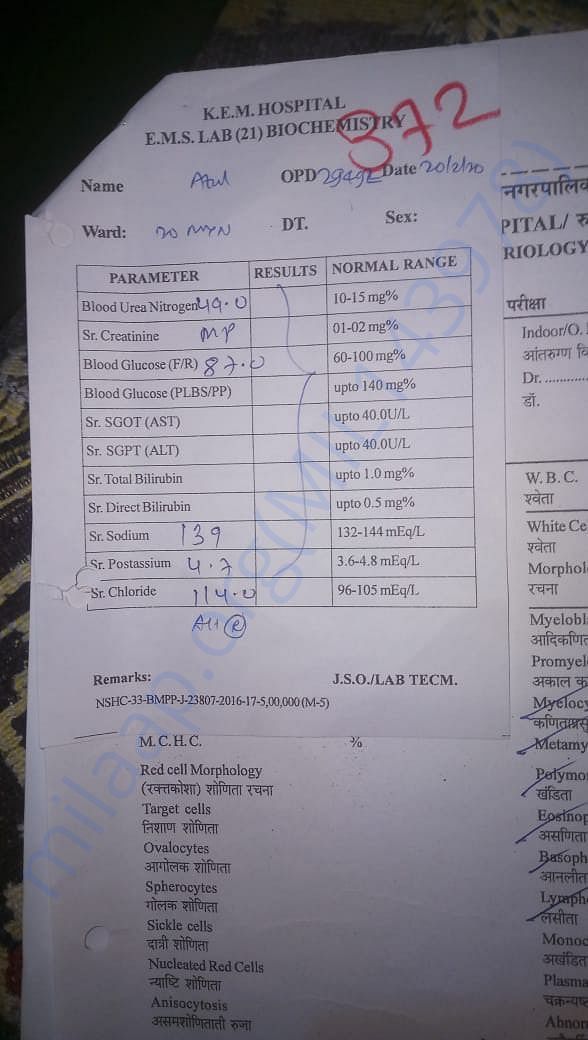 K.E.M. HOSPITAL
E.M.S. LAB (21) BIOCHEMISTRY
372
Name Atul OPD 29492 Date 20/2/20
Ward: 20 DT. Sex:
PARAMETER RESULTS NORMAL RANGE
Blood Urea Nitrogen 49.0 10-15 mg%
Sr. Creatinine MP 01-02 mg%
Blood Glucose (F/R) 87.0 60-100 mg%
Blood Glucose (PLBS/PP) upto 140 mg%
Sr. SGOT (AST) upto 40.0U/L
Sr. SGPT (ALT) upto 40.0U/L
Sr. Total Bilirubin upto 1.0 mg%
Sr. Direct Bilirubin upto 0.5 mg%
Sr. Sodium 139 132-144 mEq/L
Sr. Postassium 4.7 3.6-4.8 mEq/L
Sr. Chloride 114.0 96-105 mEq/L
All R
Remarks: J.S.O./LAB TECM.
NSHC-33-BMPP-J-23807-2016-17-5,00,000 (M-5)
M.C.H.C. %
Red cell Morphology
(रक्तकोशा) शोणिता रचना
Target cells
निशाण शोणिता
Ovalocytes
आगोलक शोणिता
Spherocytes
गोलक शोणिता
Sickle cells
दात्री शोणिता
Nucleated Red Cells
न्याष्टि शोणिता
Anisocytosis
असमशोणिताती रुजा
नगरपालिक
PITAL/ रु
RIOLOGY
परीक्षा
Indoor/O.
आंतरुग्ण वि
Dr. ............
डॉ.
W.B.C.
श्वेता
White Ce
श्वेता
Morphol
रचना
Myelobl
आदिकणित
Promyel
अकाल क
Myelocy
Metamy
Polymo
खंडिता
Eosinop
असणिता
Basoph
आनलीत
Lymph
लसीता
Monoc
अखंडित
Plasma
Abnor
milaap.org(MIL1439782)